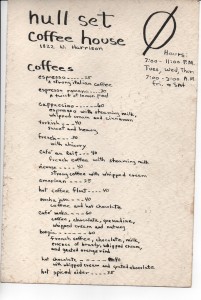 null set
coffee house
1822 W. Harrison
Hours:
7:00 - 11:00 P.M.
Tues, Wed, Thur
7:00 - 2:00 A.M.
Fri. & Sat
coffees
espresso ---- .25
a strong Italian coffee
espresso romano ---- 30
a twist of lemon peel
cappuccino ---- 60
espresso with steaming milk,
whipped cream and cinnamon
turkish ---- 40
sweet and heavy
french ---- 30
with chicory
cafe au lait ---- 40
french coffee with steaming milk
vienna ---- 40
strong coffee with whipped cream
american ---- 25
hot coffee float ---- 40
mocha java ---- 40
coffee and hot chocolate
cafe ---- 60
coffee, chocolate,
whipped cream and nutmeg
---- 60
french coffee, chocolate, milk,
essence of brandy, whipped cream,
and grated orange rind
hot chocolate ----
with whipped cream and grated chocolate
hot spiced cider ---- .35